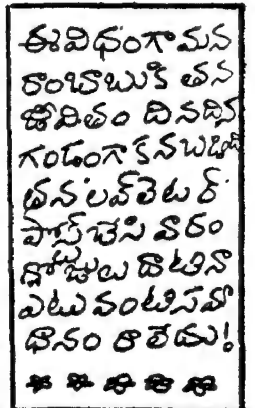 ఈ విధంగా మన
రాంబాబుకి తన
జీవితం దినదిన
గండంగా కనబడింది
తన 'లవ్ లెటర్'
పోస్ట్ చేసి వారం
రోజులు దాటినా
ఎటువంటి సమా
ధానం రాలేదు!